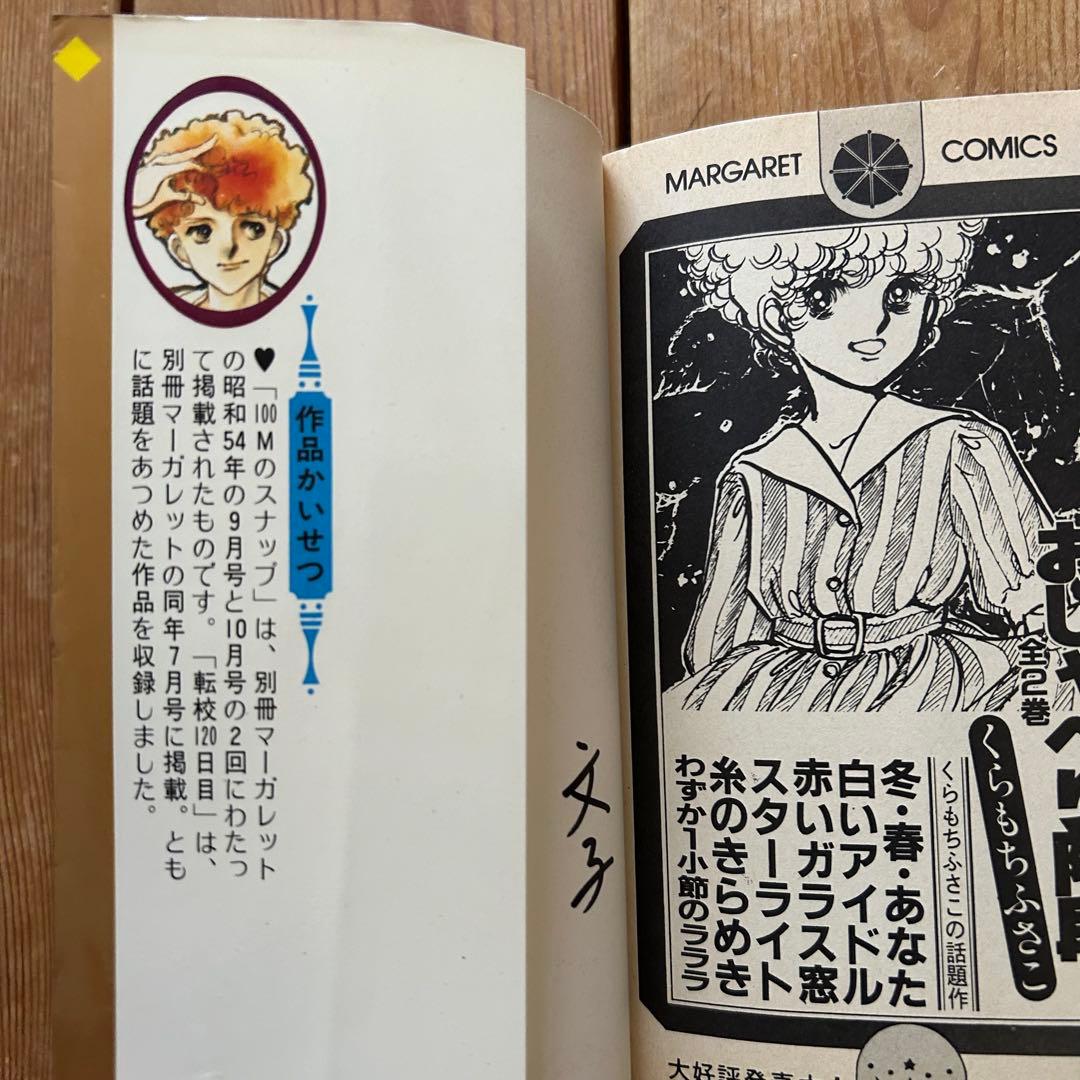 作品かいせつ
♥「100Mのスナップ」は、別冊マーガレット
の昭和54年の9月号と10月号の2回にわたっ
て掲載されたものです。「転校120日目」は、
別冊マーガレットの同年7月号に掲載。とも
に話題をあつめた作品を収録しました。
文子
MARGARET COMICS
全2巻
くらもちふさこ
くらもちふさこの話題作
冬・春・あなた
白いアイドル
赤いガラス窓
スターライト
糸のきらめき
わずか1小節のラララ